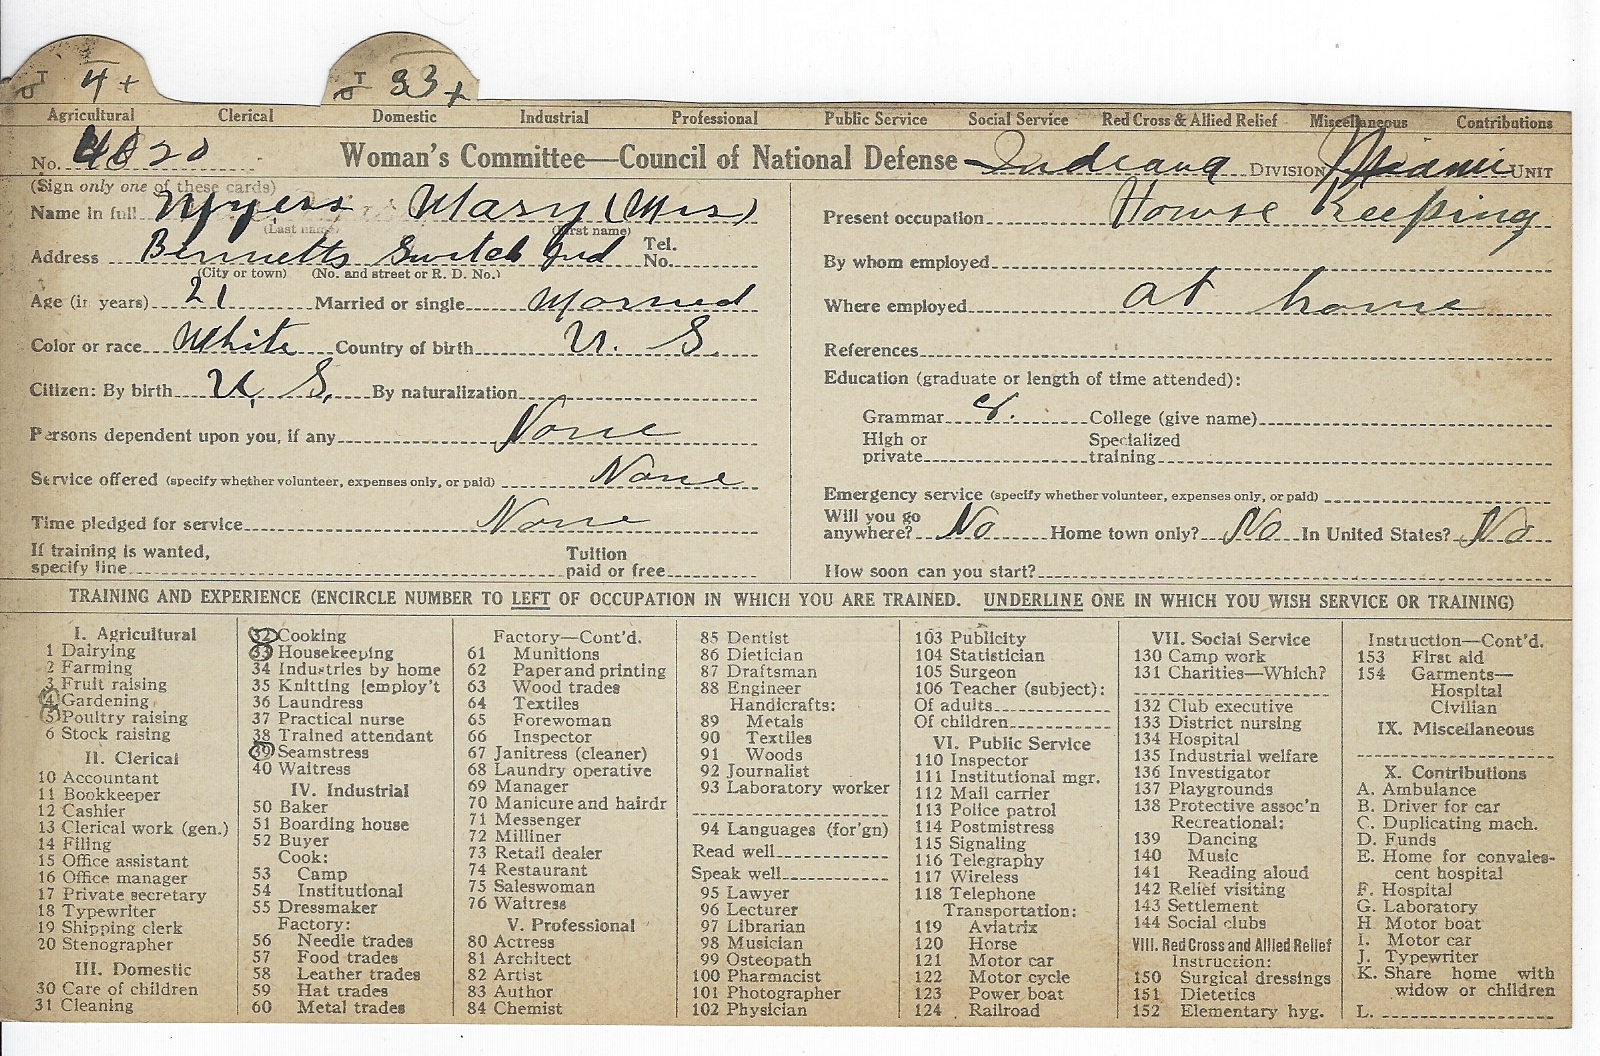 4 +
33 +
Agricultural Clerical Domestic Industrial Professional Public Service Social Service Red Cross & Allied Relief Miscellaneous Contributions
No. 4020 Woman's Committee—Council of National Defense Indiana DIVISION Miami UNIT
(Sign only one of these cards)
Name in full Myers Mary (Mrs)
(Last name) (First name)
Address Bennetts Switch Ind Tel. No.
(City or town) (No. and street or R. D. No.)
Age (in years) 21 Married or single Married
Color or race White Country of birth U. S.
Citizen: By birth U. S. By naturalization
Persons dependent upon you, if any None
Service offered (specify whether volunteer, expenses only, or paid) None
Time pledged for service None
If training is wanted, specify line Tuition paid or free
Present occupation House Keeping
By whom employed
Where employed at home
References
Education (graduate or length of time attended):
Grammar 8. College (give name)
High or private Specialized training
Emergency service (specify whether volunteer, expenses only, or paid)
Will you go anywhere? No Home town only? No In United States? No
How soon can you start?
TRAINING AND EXPERIENCE (ENCIRCLE NUMBER TO LEFT OF OCCUPATION IN WHICH YOU ARE TRAINED. UNDERLINE ONE IN WHICH YOU WISH SERVICE OR TRAINING)
I. Agricultural
1 Dairying
2 Farming
3 Fruit raising
4 Gardening
5 Poultry raising
6 Stock raising
II. Clerical
10 Accountant
11 Bookkeeper
12 Cashier
13 Clerical work (gen.)
14 Filing
15 Office assistant
16 Office manager
17 Private secretary
18 Typewriter
19 Shipping clerk
20 Stenographer
III. Domestic
30 Care of children
31 Cleaning
32 Cooking
33 Housekeeping
34 Industries by home
35 Knitting [employ't
36 Laundress
37 Practical nurse
38 Trained attendant
39 Seamstress
40 Waitress
IV. Industrial
50 Baker
51 Boarding house
52 Buyer
Cook:
53 Camp
54 Institutional
55 Dressmaker
Factory:
56 Needle trades
57 Food trades
58 Leather trades
59 Hat trades
60 Metal trades
Factory—Cont'd.
61 Munitions
62 Paper and printing
63 Wood trades
64 Textiles
65 Forewoman
66 Inspector
67 Janitress (cleaner)
68 Laundry operative
69 Manager
70 Manicure and hairdr
71 Messenger
72 Milliner
73 Retail dealer
74 Restaurant
75 Saleswoman
76 Waitress
V. Professional
80 Actress
81 Architect
82 Artist
83 Author
84 Chemist
85 Dentist
86 Dietician
87 Draftsman
88 Engineer
Handicrafts:
89 Metals
90 Textiles
91 Woods
92 Journalist
93 Laboratory worker
94 Languages (for'gn)
Read well
Speak well
95 Lawyer
96 Lecturer
97 Librarian
98 Musician
99 Osteopath
100 Pharmacist
101 Photographer
102 Physician
103 Publicity
104 Statistician
105 Surgeon
106 Teacher (subject):
Of adults
Of children
VI. Public Service
110 Inspector
111 Institutional mgr.
112 Mail carrier
113 Police patrol
114 Postmistress
115 Signaling
116 Telegraphy
117 Wireless
118 Telephone
Transportation:
119 Aviatrix
120 Horse
121 Motor car
122 Motor cycle
123 Power boat
124 Railroad
VII. Social Service
130 Camp work
131 Charities—Which?
132 Club executive
133 District nursing
134 Hospital
135 Industrial welfare
136 Investigator
137 Playgrounds
138 Protective assoc'n
Recreational:
139 Dancing
140 Music
141 Reading aloud
142 Relief visiting
143 Settlement
144 Social clubs
VIII. Red Cross and Allied Relief
Instruction:
150 Surgical dressings
151 Dietetics
152 Elementary hyg.
Instruction—Cont'd.
153 First aid
154 Garments—
Hospital
Civilian
IX. Miscellaneous
X. Contributions
A. Ambulance
B. Driver for car
C. Duplicating mach.
D. Funds
E. Home for convales-
cent hospital
F. Hospital
G. Laboratory
H. Motor boat
I. Motor car
J. Typewriter
K. Share home with
widow or children
L.